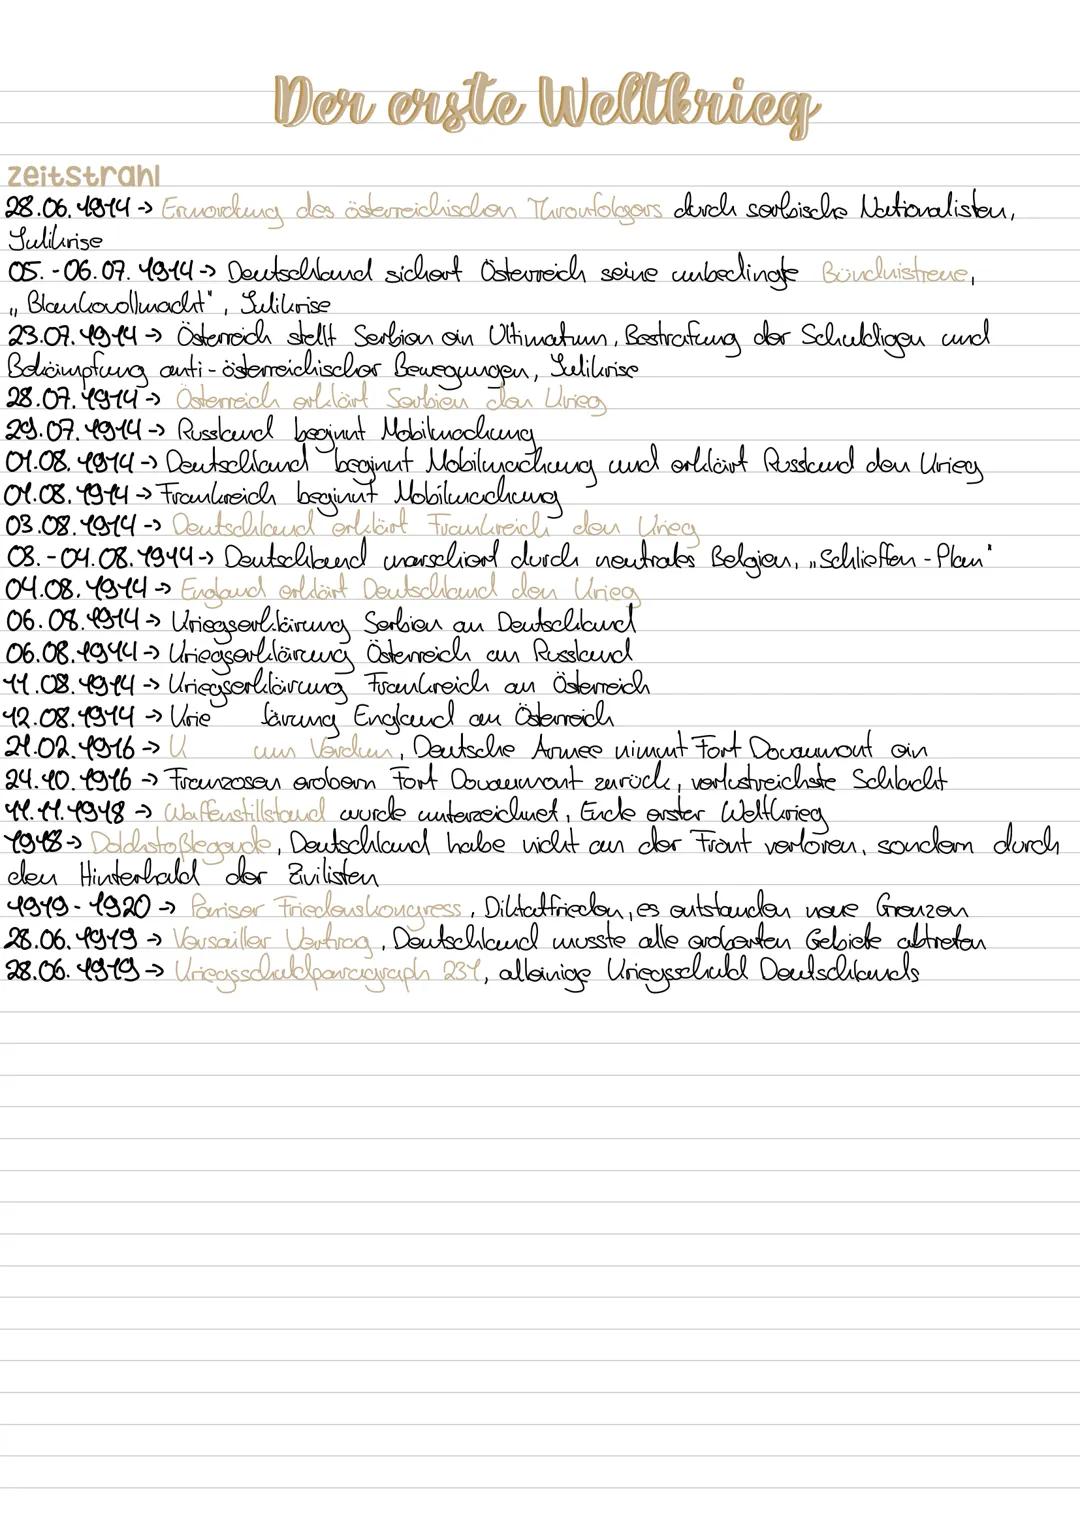 Der erste Weltkrieg
Zeitstrahl
28.06.1914 -> Ermordung des österreichischen Thronfolgers durch serbische Nationalisten,
Julikrise
05.-06.07.1914 -> Deutschland sichert Österreich seine unbedingte Bündnistreue,
„Blankovollmacht", Julikrise
23.07.1914 -> Österreich stellt Serbien ein Ultimatum, Bestrafung der Schuldigen und
Bekämpfung anti-österreichischer Bewegungen, Julikrise
28.07.1914 -> Österreich erklärt Serbien den Krieg
29.07.1914 -> Russland beginnt Mobilmachung
01.08.1914 -> Deutschland beginnt Mobilmachung und erklärt Russland den Krieg
01.08.1914 -> Frankreich beginnt Mobilmachung
03.08.1914 -> Deutschland erklärt Frankreich den Krieg
03.-04.08.1914 -> Deutschland marschiert durch neutrales Belgien, „Schlieffen-Plan"
04.08.1914 -> England erklärt Deutschland den Krieg
06.08.1914 -> Kriegserklärung Serbien an Deutschland
06.08.1914 -> Kriegserklärung Österreich an Russland
11.08.1914 -> Kriegserklärung Frankreich an Österreich
12.08.1914 -> Krie lärung England an Österreich
21.02.1916 -> K um Verdun, Deutsche Armee nimmt Fort Douaumont ein
24.10.1916 -> Franzosen erobern Fort Douaumont zurück, verlustreichste Schlacht
11.11.1918 -> Waffenstillstand wurde unterzeichnet, Ende erster Weltkrieg
1918 -> Dolchstoßlegende, Deutschland habe nicht an der Front verloren, sondern durch
den Hinterhald der Zivilisten
1919-1920 -> Pariser Friedenskongress, Diktatfrieden, es entstanden neue Grenzen
28.06.1919 -> Versailler Vertrag, Deutschland musste alle eroberten Gebiete abtreten
28.06.1919 -> Kriegsschuldparagraph 231, alleinige Kriegsschuld Deutschlands